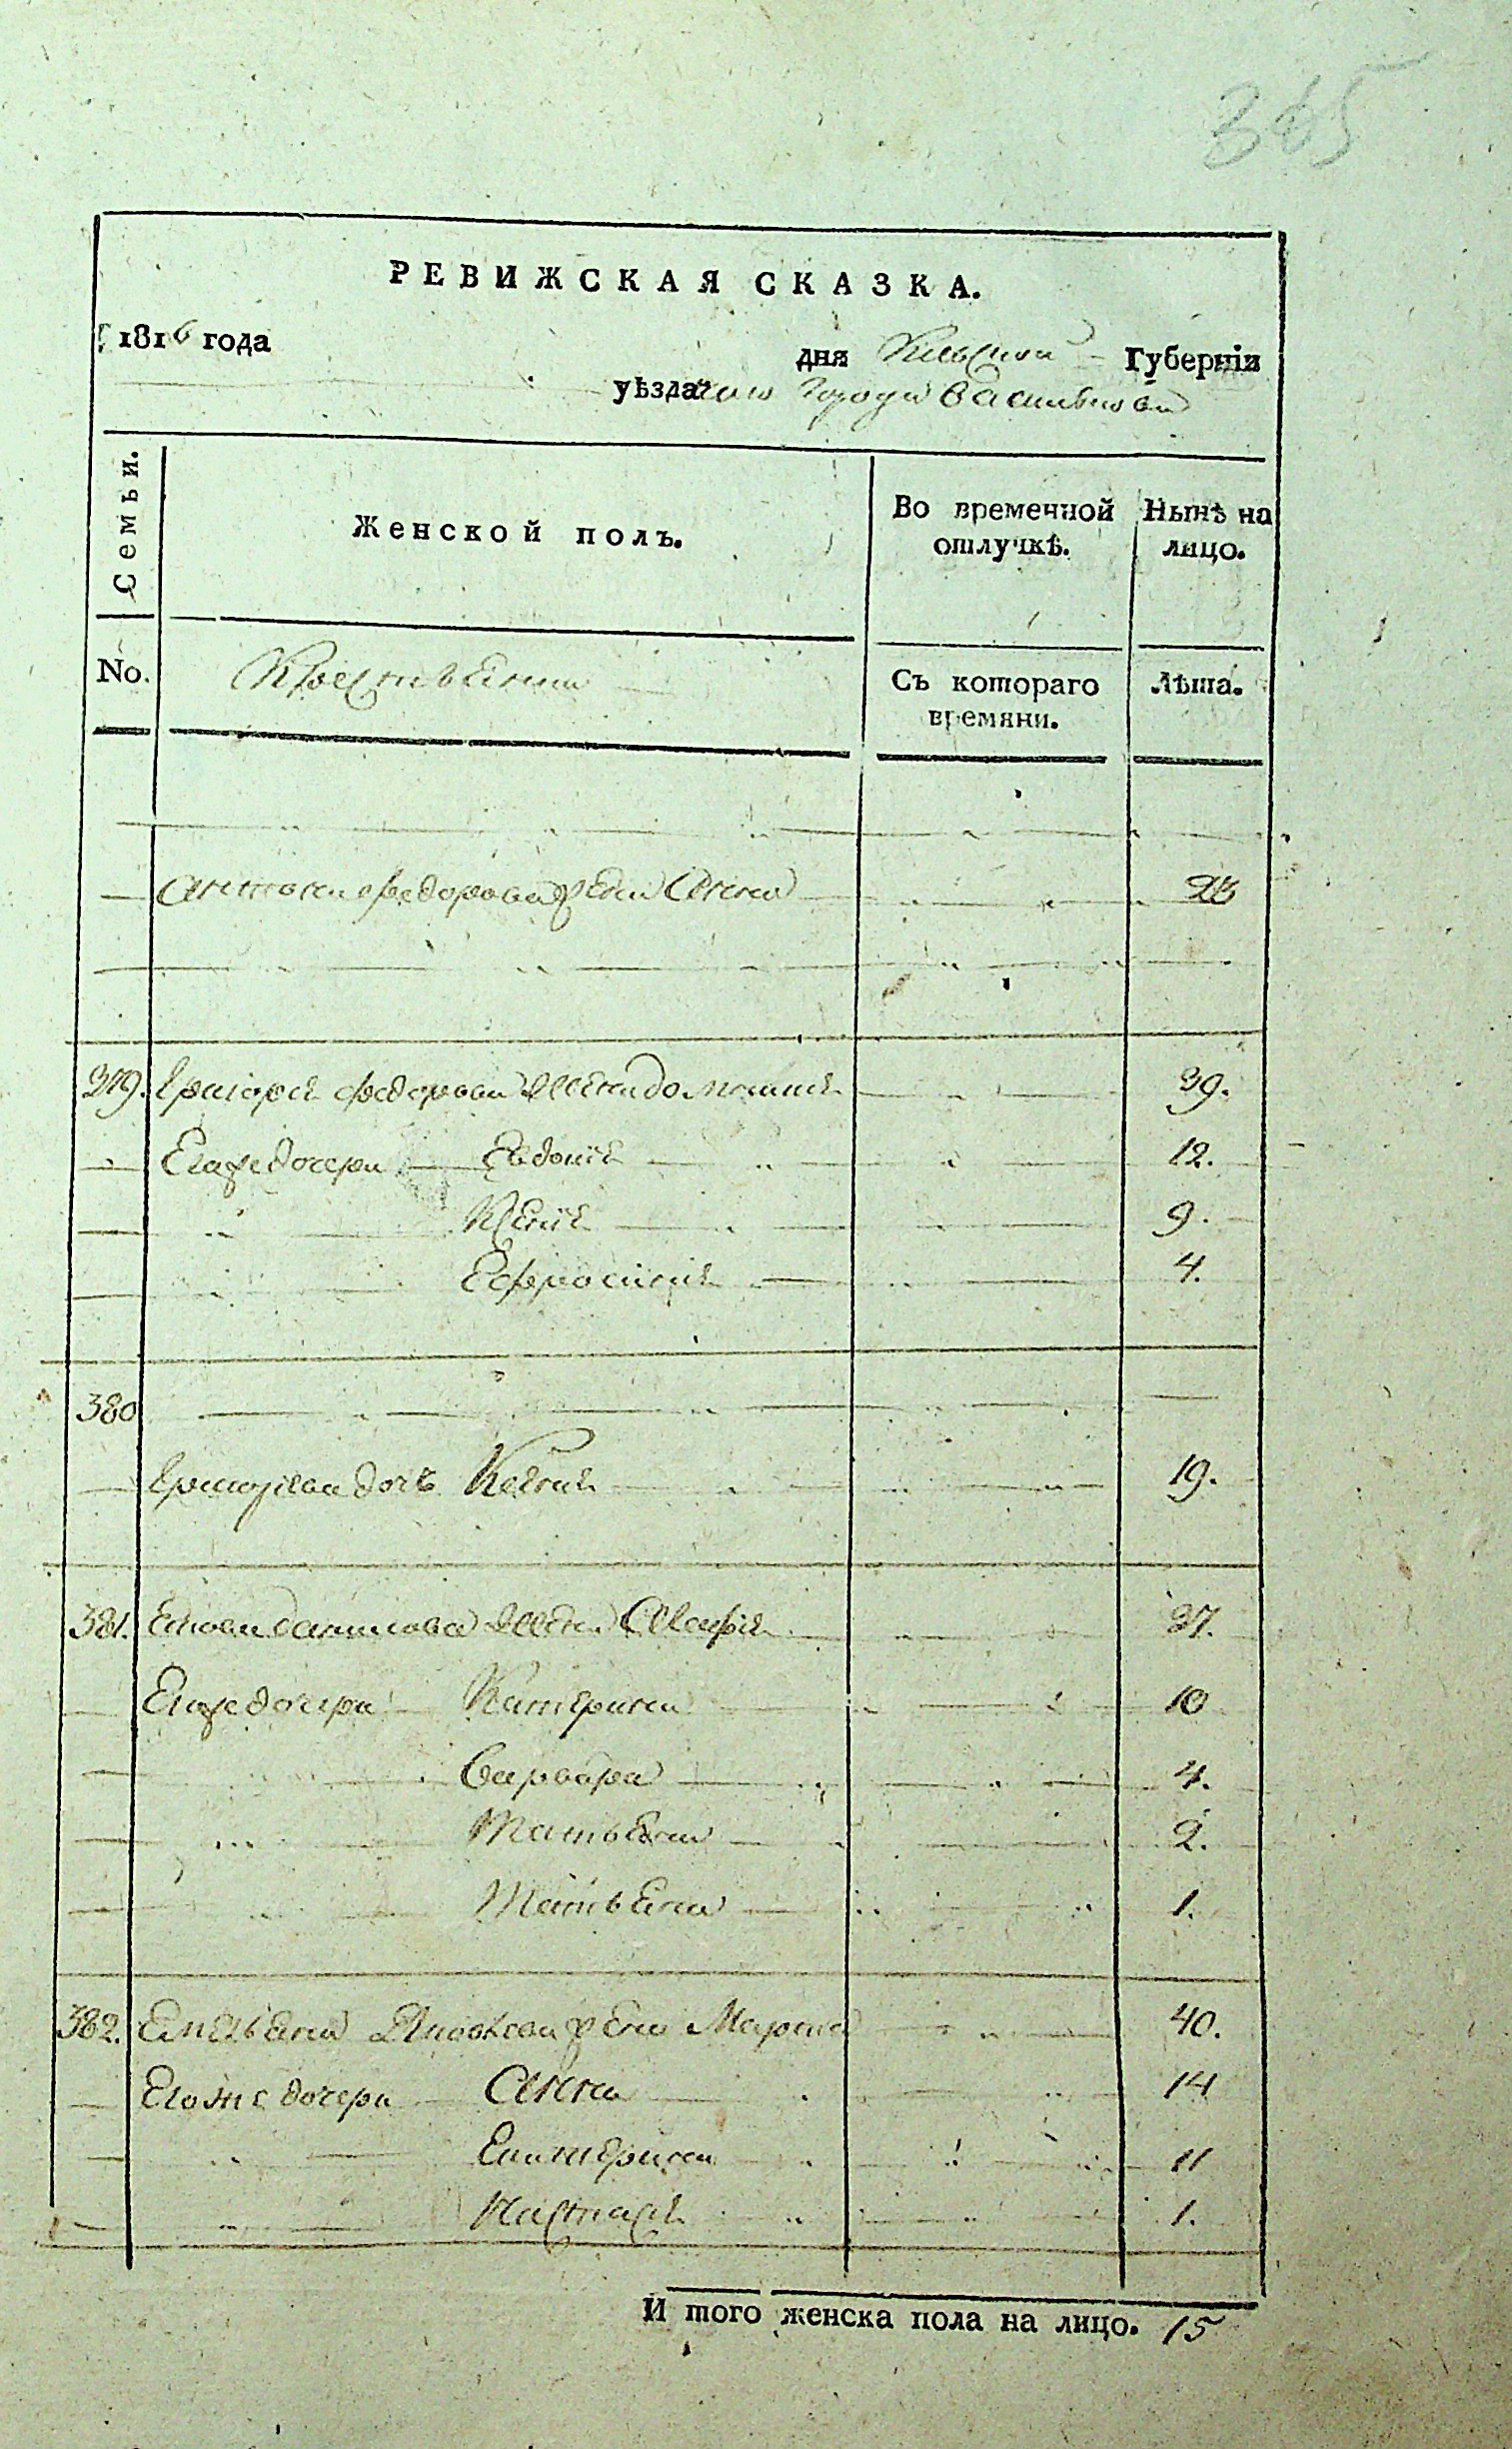 365
РЕВИЖСКАЯ СКАЗКА.
1816 года дня Киевской Губерніи
уѣзднаго города Василькова
Семьи. Женской полъ. Во временной отлучкѣ. Нынѣ на лицо.
No. Съ котораго времяни. Лѣта.
Антона Федорова жена Анна
379. Григорія Федорова жена Домникія 39.
Егоже дочери Евдокія 12.
Ксенія 9.
Ефросинія 4.
380
дочь Ксенія 19.
381. Данилова жена Марфія 37.
Егоже дочери Катерина 10
Варвара 4.
Татьяна 2.
Татьяна 1.
382. Емельяна Яковлева жена Марина 40.
Егоже дочери Анна 14
Екатерина 11
Настасія 1.
И того женска пола на лицо. 15